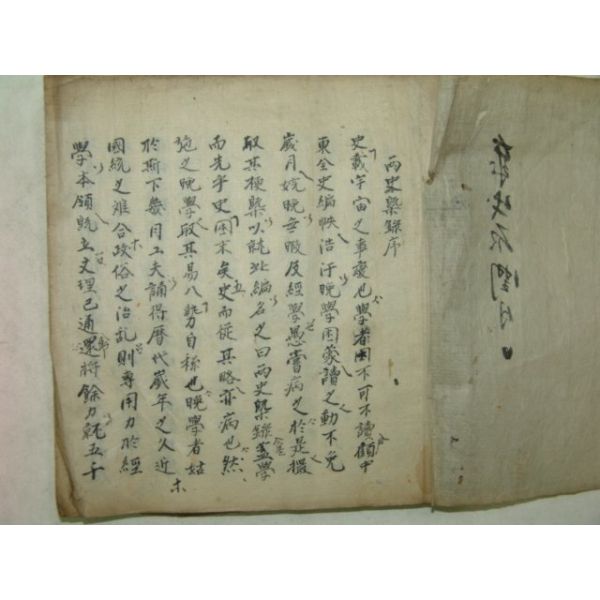 兩史槩錄序
史載宇宙之事變也學者固不可不讀顧中
東全史編帙浩汗晩學困蒙讀之動不免
歲月婉晩無暇及經學愚嘗病之於是撮
取其梗槩以就此編名之曰兩史槩錄盖學
而先乎史固末矣史而從其略亦病也然
施之晩學取其易入力自稱也晩學者姑
於斯下幾月工夫誦得曆代歲年之久近
國統之難合政俗之治乱則專用力於經
學本領旣立文理已通還將餘力就五千